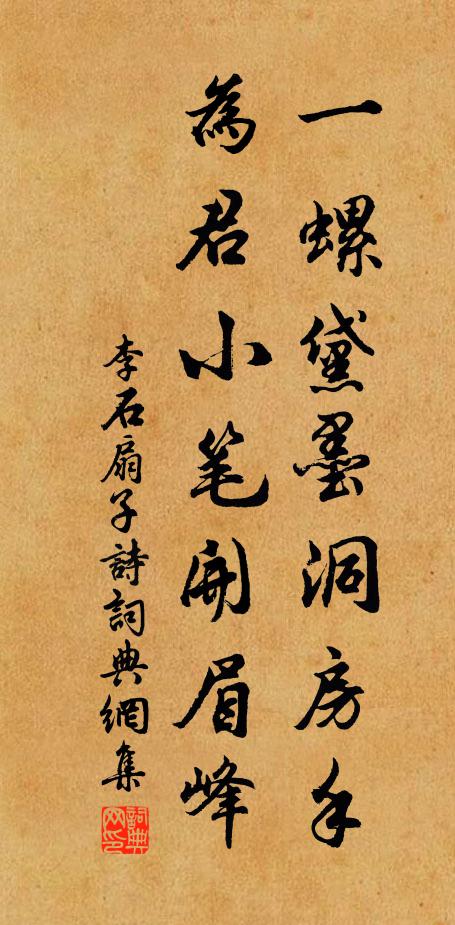 一螺黛墨洞房手
為君小笔開眉峰
李石扇子詩詞典網集
詞典网印